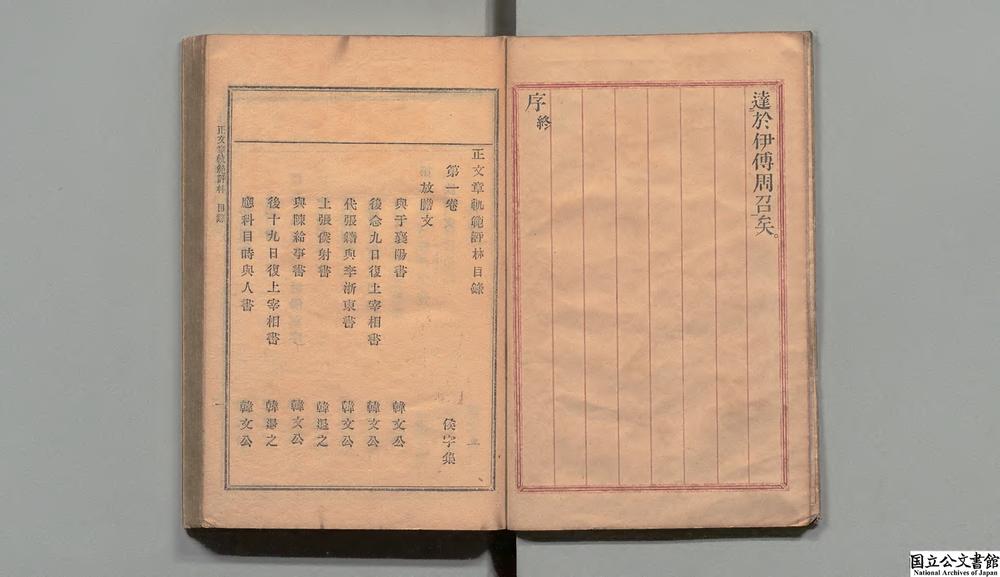 達於伊傅周召矣。
序終
正文章軌範評林目錄
第一卷
侯字集
放膽文
與于襄陽書 韓文公
後念九日復上宰相書 韓文公
代張籍與李浙東書 韓文公
上張僕射書 韓退之
與陳給事書 韓文公
後十九日復上宰相書 韓退之
應科目時與人書 韓文公
正文章軌範評林 目錄
国立公文書館
National Archives of Japan